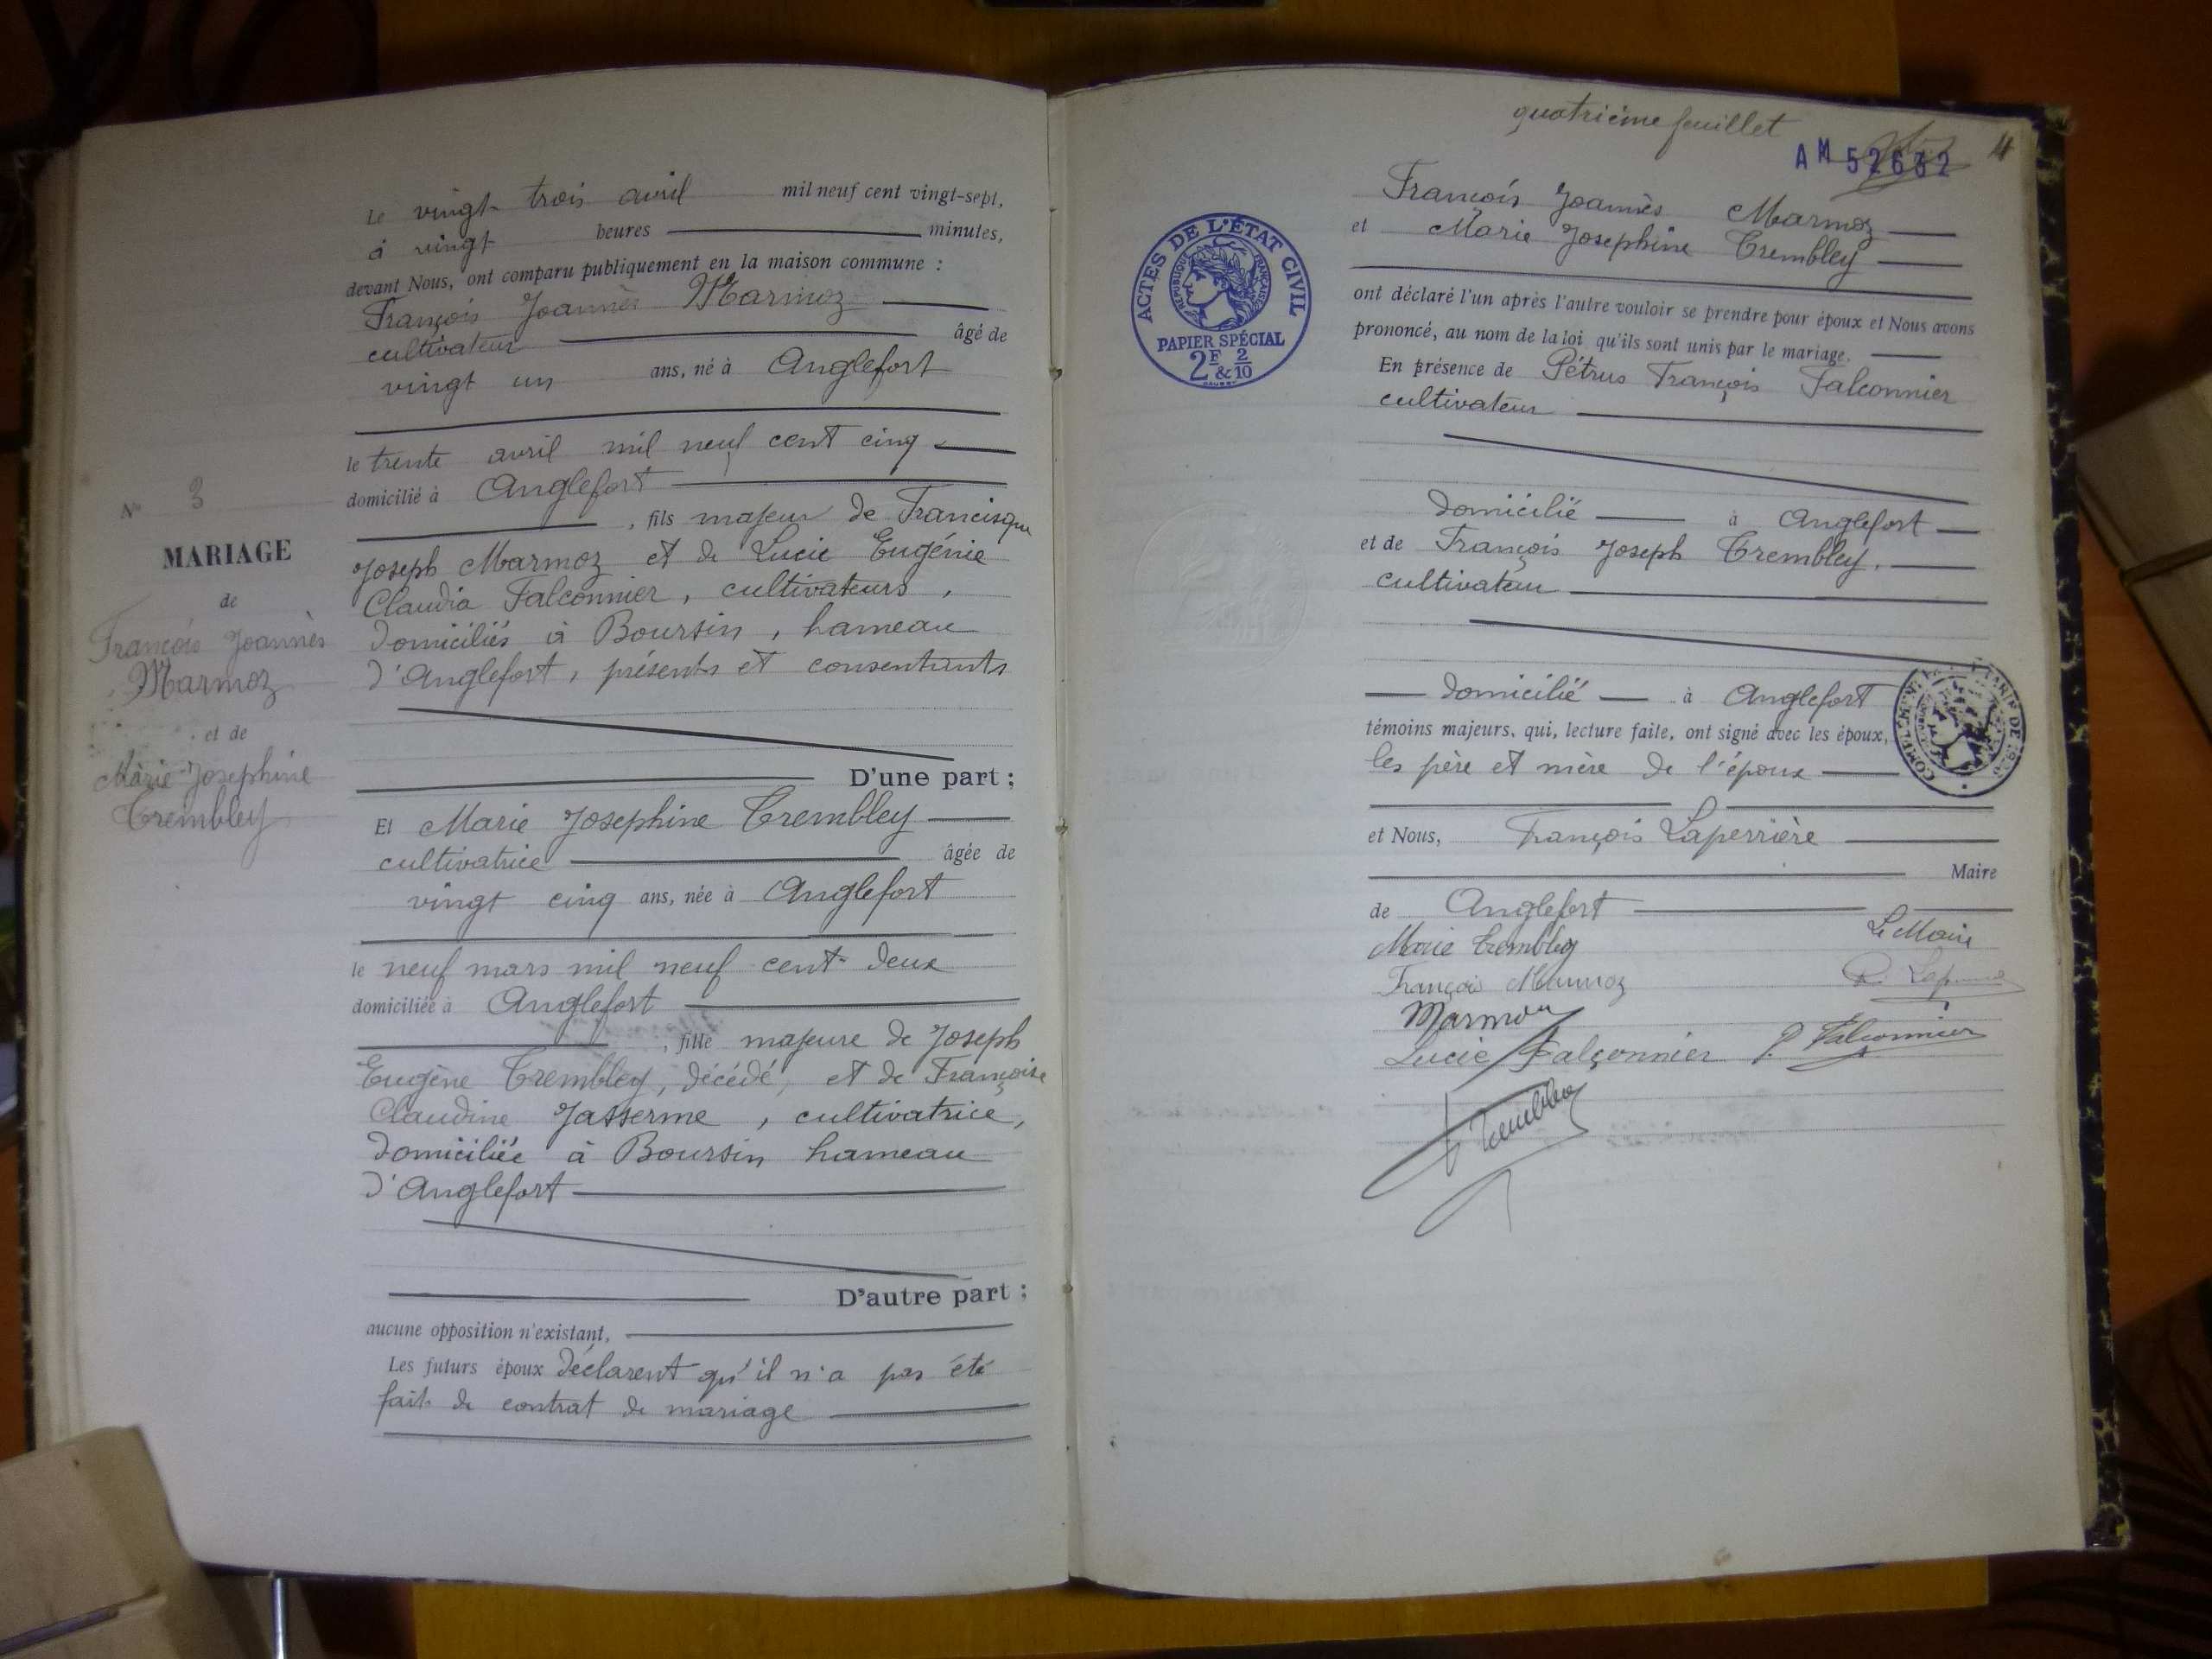 Le vingt trois avril mil neuf cent vingt-sept,
à vingt heures minutes,
devant Nous, ont comparu publiquement en la maison commune :
François Joannès Marmoz
cultivateur âgé de
vingt un ans, né à Anglefort
le trente avril mil neuf cent cinq
domicilié à Anglefort
, fils majeur de Francisque
Joseph Marmoz et de Lucie Eugénie
Claudia Falconnier, cultivateurs,
domiciliés à Boursin, hameau
d'Anglefort, présents et consentants
D'une part ;
Et Marie Josephine Trembley
cultivatrice âgée de
vingt cinq ans, née à Anglefort
le neuf mars mil neuf cent deux
domiciliée à Anglefort
, fille majeure de Joseph
Eugène Trembley, décédé, et de Françoise
Claudine Jasserme, cultivatrice,
domiciliée à Boursin hameau
d'Anglefort
D'autre part ;
aucune opposition n'existant,
Les futurs époux déclarent qu'il n'a pas été
fait de contrat de mariage
N° 3
MARIAGE
de
François Joannès
Marmoz
et de
Marie Josephine
Trembley
quatrième feuillet
4
AM 52632
ACTES DE L'ÉTAT CIVIL
RÉPUBLIQUE FRANÇAISE
PAPIER SPÉCIAL
2F & 2/10
François Joannès Marmoz
et Marie Josephine Trembley
ont déclaré l'un après l'autre vouloir se prendre pour époux et Nous avons
prononcé, au nom de la loi qu'ils sont unis par le mariage.
En présence de Pétrus François Falconnier
cultivateur
domicilié à Anglefort
et de François Joseph Trembley,
cultivateur
domicilié à Anglefort
témoins majeurs, qui, lecture faite, ont signé avec les époux,
les père et mère de l'époux
et Nous, François Laperrière
Maire
de Anglefort
Marie Trembley
Le Maire
François Marmoz
Marmoz
Lucie Falçonnier
P. Falconnier
Trembley